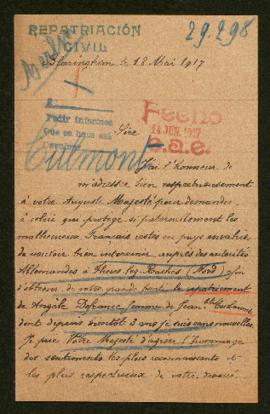 REPATRIACIÓN
CIVIL
29.298
le 18 Mai 1917
Pedir informes
Que se haga así
FECHO
14 JUN. 1917
R.a.e.
Sire
J'ai l'honneur de
m'adresser bien respectueusement
à votre Auguste Majesté pour demander
à celui qui protège si paternellement les
malheureux Français restés en pays envahis,
de vouloir bien intervenir auprès des autorités
Allemandes à Flines-les-Raches (Nord) afin
d'obtenir de votre grande bonté le rapatriement
de Angèle Defrance femme de Jean-Bte
dont depuis bientôt 3 ans je suis sans nouvelles.
Je prie Votre Majesté d'agréer l'hommage
des sentiments les plus reconnaissants et
les plus respectueux de votre dévoué.